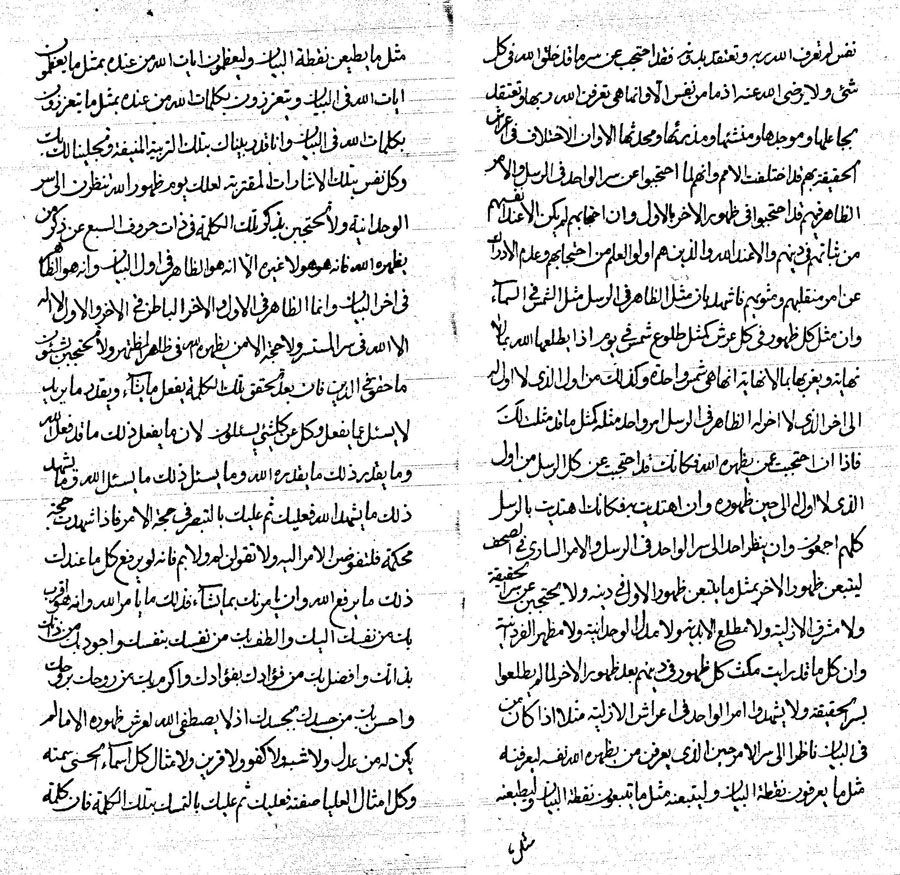 نفس لم تعرف الله ربه و تعتقد بدونه فقد احتجب عن سر ما قد خلق الله فى كل
شئ و لا يرضى الله عنه اذ ما من نفس الا و انما هى تعرفن الله ربها و تعتقد
بجاعلها و موجدها و منشئها و مذرئها و محدثها الا و ان الاختلاف فى اعراش
الحقيقة بهم قد اختلفت الامم و انهم لما احتجبوا عن سر الواحد فى الرسل و الامر
الظاهر فيهم قد احتجبوا فى ظهور الاخر بالاول و ان احتجابهم لم يكن الا عند انفسهم
من ثباتهم فى دينهم و الا عند الله و الذين هم اولوا العلم من احتجابهم و عدم الادراك
عن امر منقلبهم و مثويهم فاشهد بان مثل الظاهر فى الرسل مثل الشمس فى السماء
و ان مثل كل ظهور فى كل عرش كمثل طلوع شمس فى يوم اذا يطلعها الله بما لا
نهاية و يغربها بما لا نهاية انها هى شمس واحدة و كذلك من اول الذى لا اول له
الى اخر الذى لا اخر له الظاهر فى الرسل امر واحد مثله كمثل ما قد مثلت لك
فاذا ان احتجبت عمن يظهره الله فكانك قد احتجبت عن كل الرسل من اول
الذى لا اول له الى حين ظهوره و ان اهتديت به فكانك اهتديت بالرسل
كلهم اجمعون و ان ينظر احد الى سر الواحد فى الرسل و الامر السارى فى الصحف
ليتبعن ظهور الاخر بمثل ما يتبعن ظهور الاول فى دينه و لا يحتجبن عن سر الحقيقة
و لا مشرق الازلية و لا مطلع الابدية و لا مدل الوحدانية و لا مظهر الفردانية
و ان كل ما قد رايت مكث كل ظهور فى دينهم بعد ظهور الاخر لما لم يطلعوا
بسر الحقيقة و لا يشهدوا امر الواحد فى اعراش الازلية مثلا اذا كان من
فى البيان ناظرا الى سر الامر حين الذى يعرفن من يظهره الله نفسه ليعرفنه
مثل ما يعرفون نقطة البيان و ليتبعنه مثل ما يتبعون نقطة البيان و ليطيعنه
مثل ما
مثل ما يطيعن نقطة البيان و ليعظمون ايات الله من عنده بمثل ما يعظمون
ايات الله فى البيان و يتعززون بكلمات الله من عنده بمثل ما يتعززون
بكلمات الله فى البيان و انا قد ربيناك بتلك التربية المنيفة و تجلينا لك بك
و كل نفس بتلك الاشارات المقتربة لعلك يوم ظهور الله تنظرن الى سر
الوحدانية و لا تحتجبن بذكر تلك الكلمة فى ذات حروف السبع عن ذكر من
يظهره الله فانه هو هو لا غيره الا انه هو الظاهر فى اول البيان و انه هو الظاهر
فى اخر البيان و انما الظاهر فى الاول و الاخر الباطن فى الاخر و الاول لا اله
الا الله فى سر المستسر و لا حجة الا من يظهره الله فى ظاهر المظهر و لا تحتجبن بشئون
ما حقق فى الدين فان بعد تحقق تلك الكلمة يفعل ما يشاء و يقدر ما يريد
لا يسئل عما يفعل و كل عن كلشئ يسئلون لان ما يفعل ذلك ما قد فعل الله
و ما يقدر ذلك ما يقدره الله و ما يسئل ذلك ما يسئل الله و ما يشهد
ذلك ما يشهد الله فعليك ثم عليك بالتبصر فى حجة الامر فاذا شهدت حجة
محكمة فلتفوضن الامر اليه و لا تقولن لم و لا بم فانه لو يرفع كل ما عندك
ذلك ما يرفع الله و ان يامرنك بما يشاء فذلك ما يامر الله و انه هو اقرب
بك من نفسك اليك و الطف بك من نفسك بنفسك و اجود بك من ذاتك
بذاتك و افضل بك من فؤادك بفؤادك و اكرم بك من روحك بروحك
و احسن بك من جسدك بجسدك اذ لا يصطفى الله لعرش ظهوره الا ما لم
يكن له من عدل و لا شبه و لا كفو و لا قرين و لا مثال كل اسماء الحسنى سمته
و كل امثال العليا صفته فعليك ثم عليك بالتمسك بتلك الكلمة فان كلمة